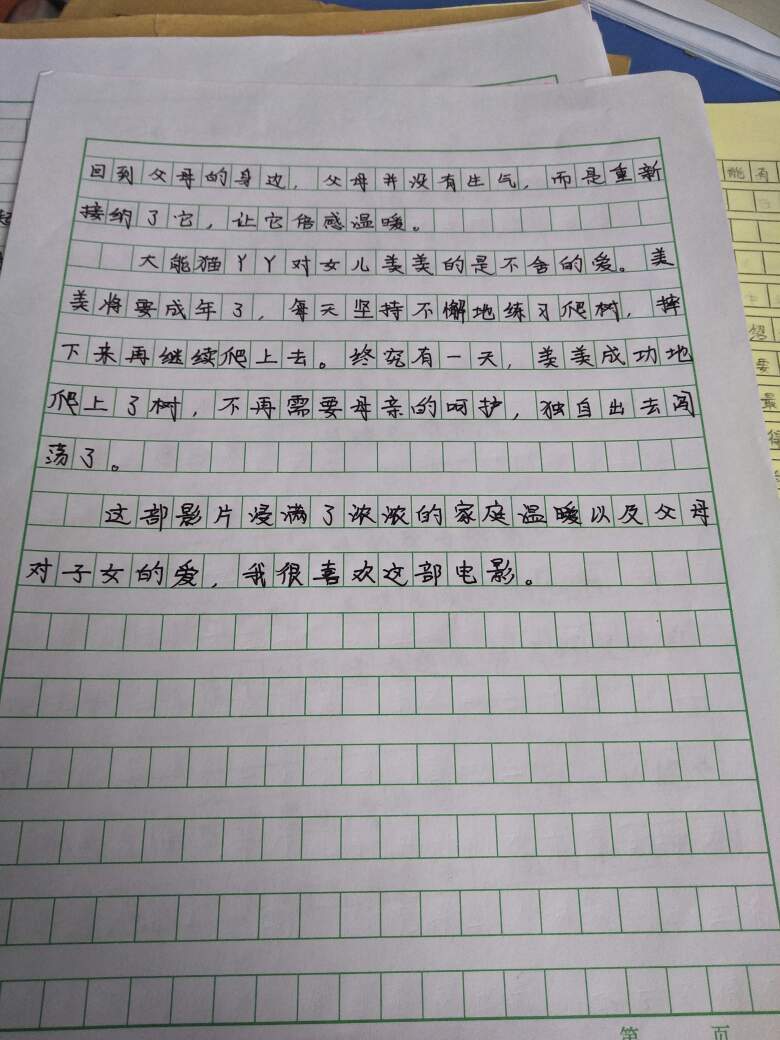 回到父母的身边，父母并没有生气，而是重新
接纳了它，让它倍感温暖。
大能猫丫丫对女儿美美的是不舍的爱。美
美将要成年了，每天坚持不懈地练习爬树，摔
下来再继续爬上去。终究有一天，美美成功地
爬上了树，不再需要母亲的呵护，独自出去闯
荡了。
这部影片浸满了浓浓的家庭温暖以及父母
对子女的爱，我很喜欢这部电影。
第 页
能有
要
最